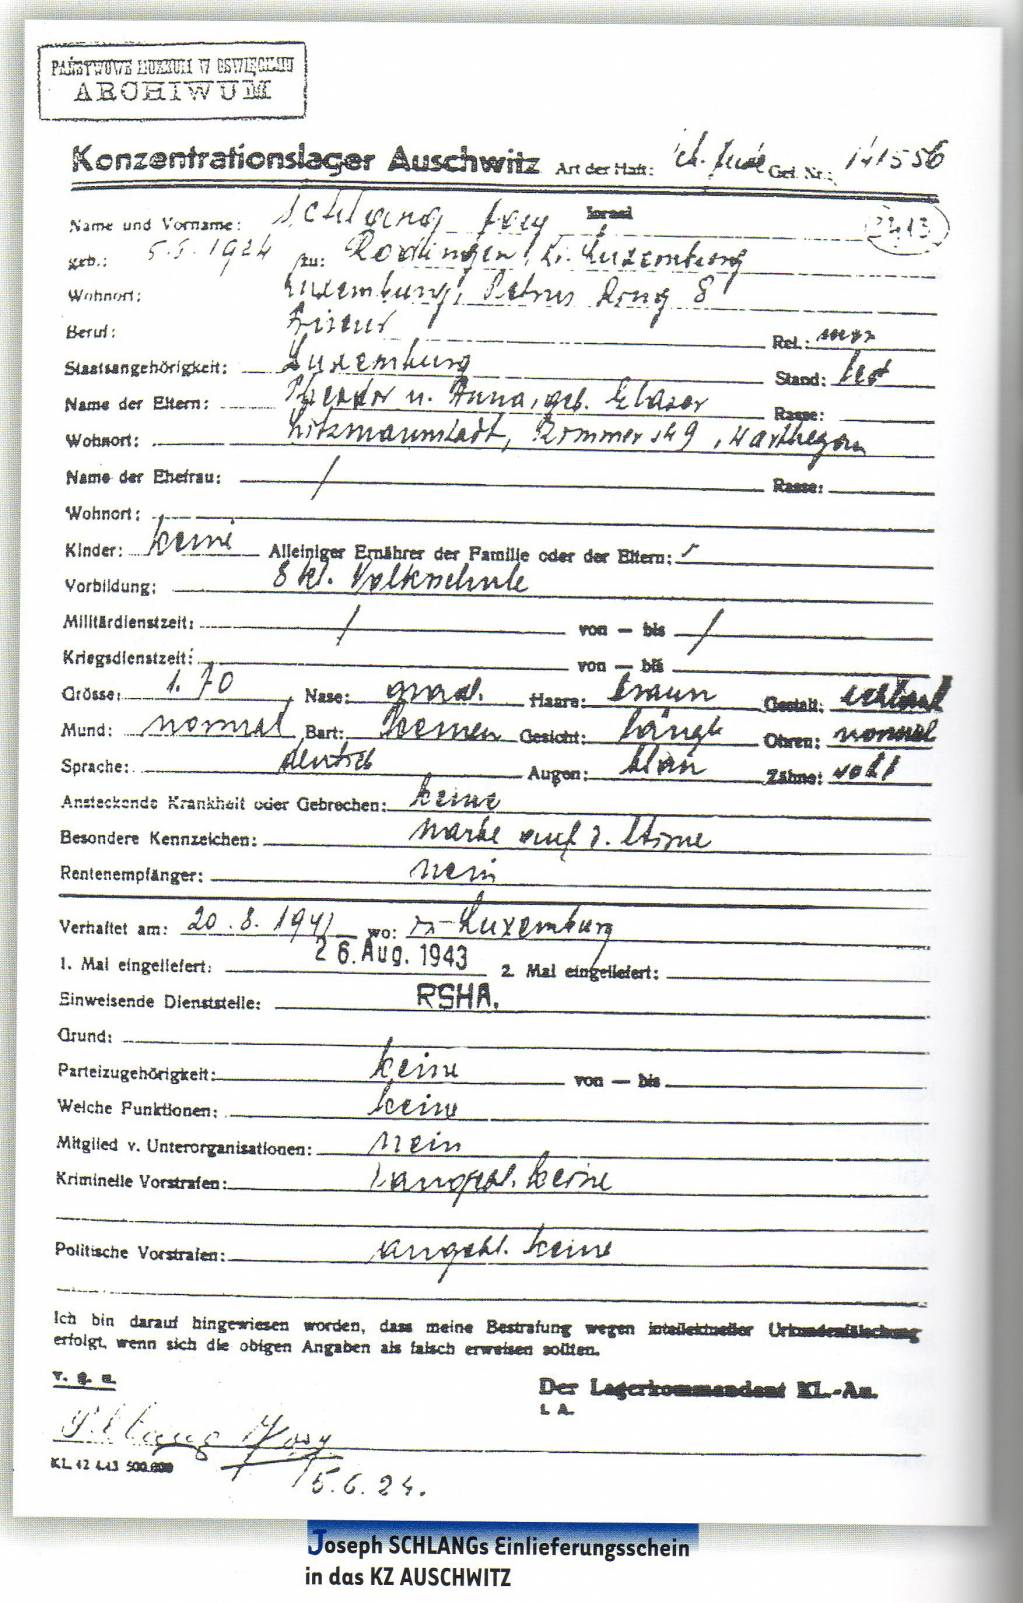 PAŃSTWOWE MUZEUM W OŚWIĘCIMIU
ARCHIWUM
Konzentrationslager Auschwitz Art der Haft: Gef. Nr.: 141556
Name und Vorname: Schlang Josy Israel 2413
geb.: 1924 zu: Rodingen, Luxemburg
Wohnort: Luxemburg, Petrus Ring 8
Beruf: Friseur Rel.: mos
Staatsangehörigkeit: Luxemburg Stand: led
Name der Eltern: Theodor u. Anna, geb. Glaser Rasse:
Wohnort: Litzmannstadt, 9, Warthegau
Name der Ehefrau: / Rasse:
Wohnort:
Kinder: keine Alleiniger Ernährer der Familie oder der Eltern:
Vorbildung: 8 kl. Volksschule
Militärdienstzeit: / von — bis /
Kriegsdienstzeit: von — bis
Grösse: 1.70 Nase: grad. Haare: braun Gestalt:
Mund: normal Bart: keinen Gesicht: längl Ohren: normal
Sprache: deutsch Augen: blau Zähne: voll
Ansteckende Krankheit oder Gebrechen: keine
Besondere Kennzeichen: Narbe auf d. Stirne
Rentenempfänger: nein
Verhaftet am: 20.8.1941 wo: in Luxemburg
1. Mal eingeliefert: 26. Aug. 1943 2. Mal eingeliefert:
Einweisende Dienststelle: RSHA.
Grund:
Parteizugehörigkeit: keine von — bis
Welche Funktionen: keine
Mitglied v. Unterorganisationen: nein
Kriminelle Vorstrafen: angebl. keine
Politische Vorstrafen: angebl. keine
Ich bin darauf hingewiesen worden, dass meine Bestrafung wegen intellektueller Urkundenfälschung
erfolgt, wenn sich die obigen Angaben als falsch erweisen sollten.
v. g. u. Der Lagerkommandant KL.-Au.
I. A.
Schlang Josy
KL 42 4.43 500.000
5.6.24.
Joseph SCHLANGs Einlieferungsschein
in das KZ AUSCHWITZ